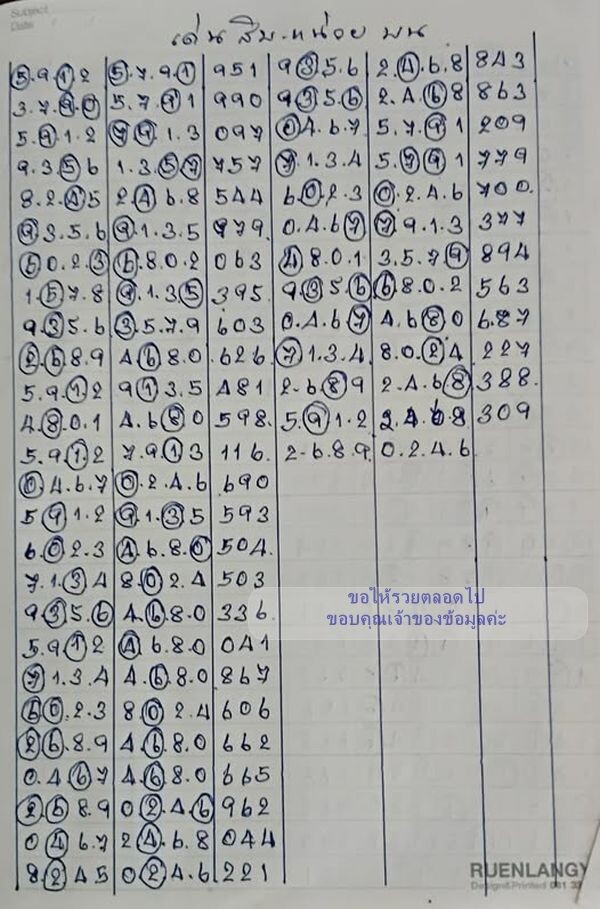 Subject
Date
เด่น สิบ-หน่วย บน
5.9.1 2 5.7.9.1 951 9 3 5.6 2.4.6.8 843
3.7.9.0 5.7.9 1 990 9 3 5.6 2.4.6 8 863
5.9 1.2 7 9.1.3 097 0 4.6.7 5.7.9 1 209
9.3.5 6 1.3.5 7 757 7.1.3.4 5.7 9 1 779
8.2.4 5 2 4 6.8 544 6.0 2.3 0.2.4.6 700.
9 3.5.6 9.1.3.5 979 0.4.6 7 7.9.1.3 377
6 0.2.3 6.8.0.2 063 4 8.0.1 3.5.7 9 894
1.5 7.8 9.1.3 5 395 9.3 5 6 6 8.0.2 563
9.3 5.6 3.5.7.9 603 0.4.6 7 4.6 8 0 687
2.6.8.9 4 6 8.0 626 7 1.3.4 8.0.2 4 227
5.9.1 2 9 1 3.5 481 2.6.8 9 2.4.6 8 388.
4.8.0.1 4.6 8 0 598. 5.9 1.2 2.4.6.8 309
5.9.1 2 7.9.1 3 116. 2-6.8.9. 0.2.4.6.
0 4.6.7 0.2.4.6 690
5 9 1.2 9.1.3 5 593
6.0 2.3 4.6.8.0 504.
7.1.3 4 8 0 2.4 503
9 3 5.6 4.6.8.0 336.
5.9 1 2 4 6.8 0 041
7 1.3.4 4.6.8.0 867
6 0.2.3 8 0 2.4 606
2 6.8.9 4 6.8.0 662
0.4 6 7 4.6 8.0 665
2 6 8.9 0 2.4.6 962
0 4 6.7 2 4.6.8 044
8.2 4 5 0 2 4.6 221
ขอให้รวยตลอดไป
ขอบคุณเจ้าของข้อมูลค่ะ
RUENLANGY
Design&Printed 081 33